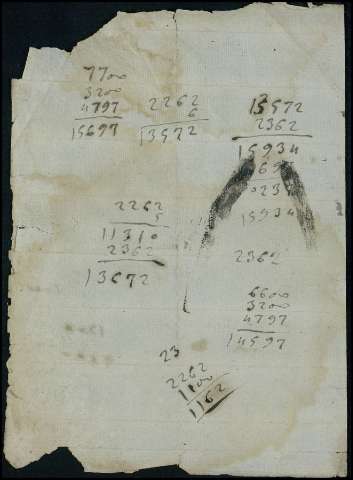 7700
3200
4797
15697
2262
6
13572
13572
2362
15934
15934
2262
5
11310
2362
13672
2362
6600
3200
4797
14597
23
2262
1100
1162